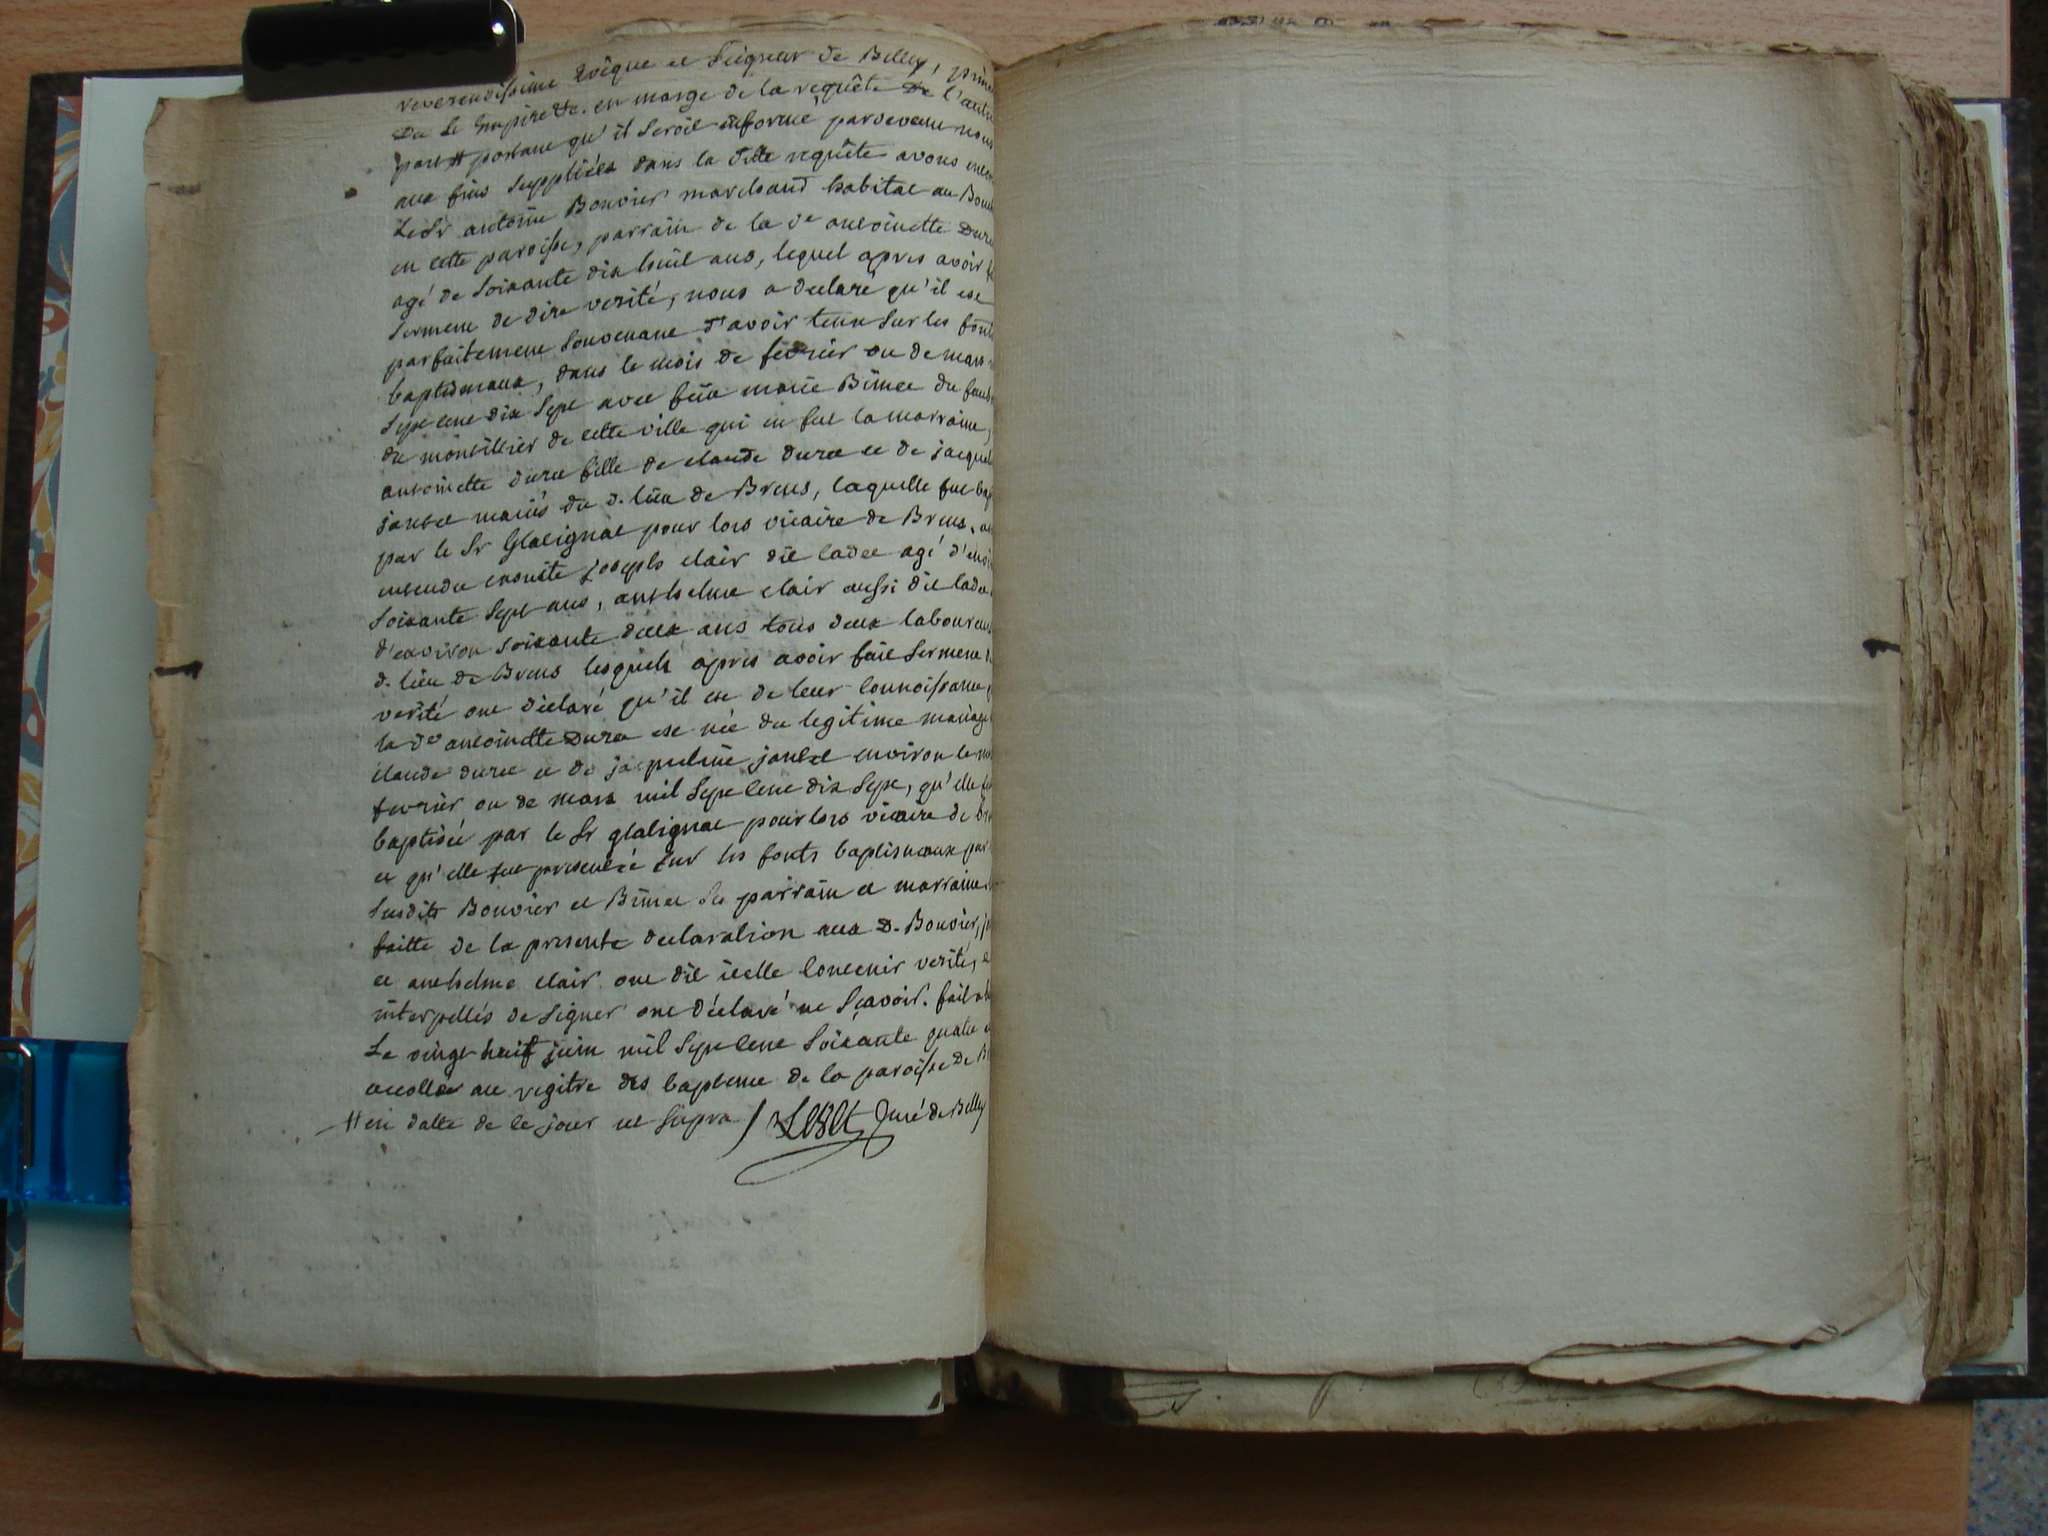 reverendissime Evêque et Seigneur de Belley, prince
Du St Empire &c. en marge de la requête de l'autre
part # portant qu'il seroit informé pardevant nous
aux fins suppliées dans la ditte requête avons
Le Sr antoine Bouvier marchand habitat au
en cette paroisse, parrain de la de antoinette
agé de soixante dix huit ans, lequel apres avoir
serment de dire verité, nous a declaré qu'il est
parfaitement souvenant d'avoir tenu sur les fonts
baptismaux, dans le mois de fevrier ou de mars
sept cent dix sept avec feüe marie Bimet du
du monthillier de cette ville qui en fut la marraine,
antoinette duree fille de claude duree et de
jantet mariés du d. lieu de Brens, laquelle fut
par le Sr Glatignat pour lors vicaire de Brens.
entendu ensuite joseph clair dit cadet agé
soixante sept ans, anthelme clair aussi dit
d'environ soixante deux ans tous deux
d. lieu de Brens lesquels apres avoir fait serment
verité ont déclaré qu'il est de leur connoissance
la de antoinette Duree est née du legitime mariage
claude duree et de jacqueline jantet environ le
fevrier ou de mars mil sept cent dix sept, qu'elle
baptisée par le Sr glatignat pour lors vicaire de
et qu'elle fut presentée sur les fonts baptismaux par
susdits Bouvier et Bimet ses parrain et marraine.
faitte de la presente declaration aux d. Bouvier,
et anthelme clair ont dit icelle contenir verité,
interpellés de signer ont déclaré ne sçavoir. fait
Le vingt huit juin mil sept cent soixante quatre
accoller au regitre des bapteme de la paroisse de
# en datte de ce jour ut supra / Curé de Belley